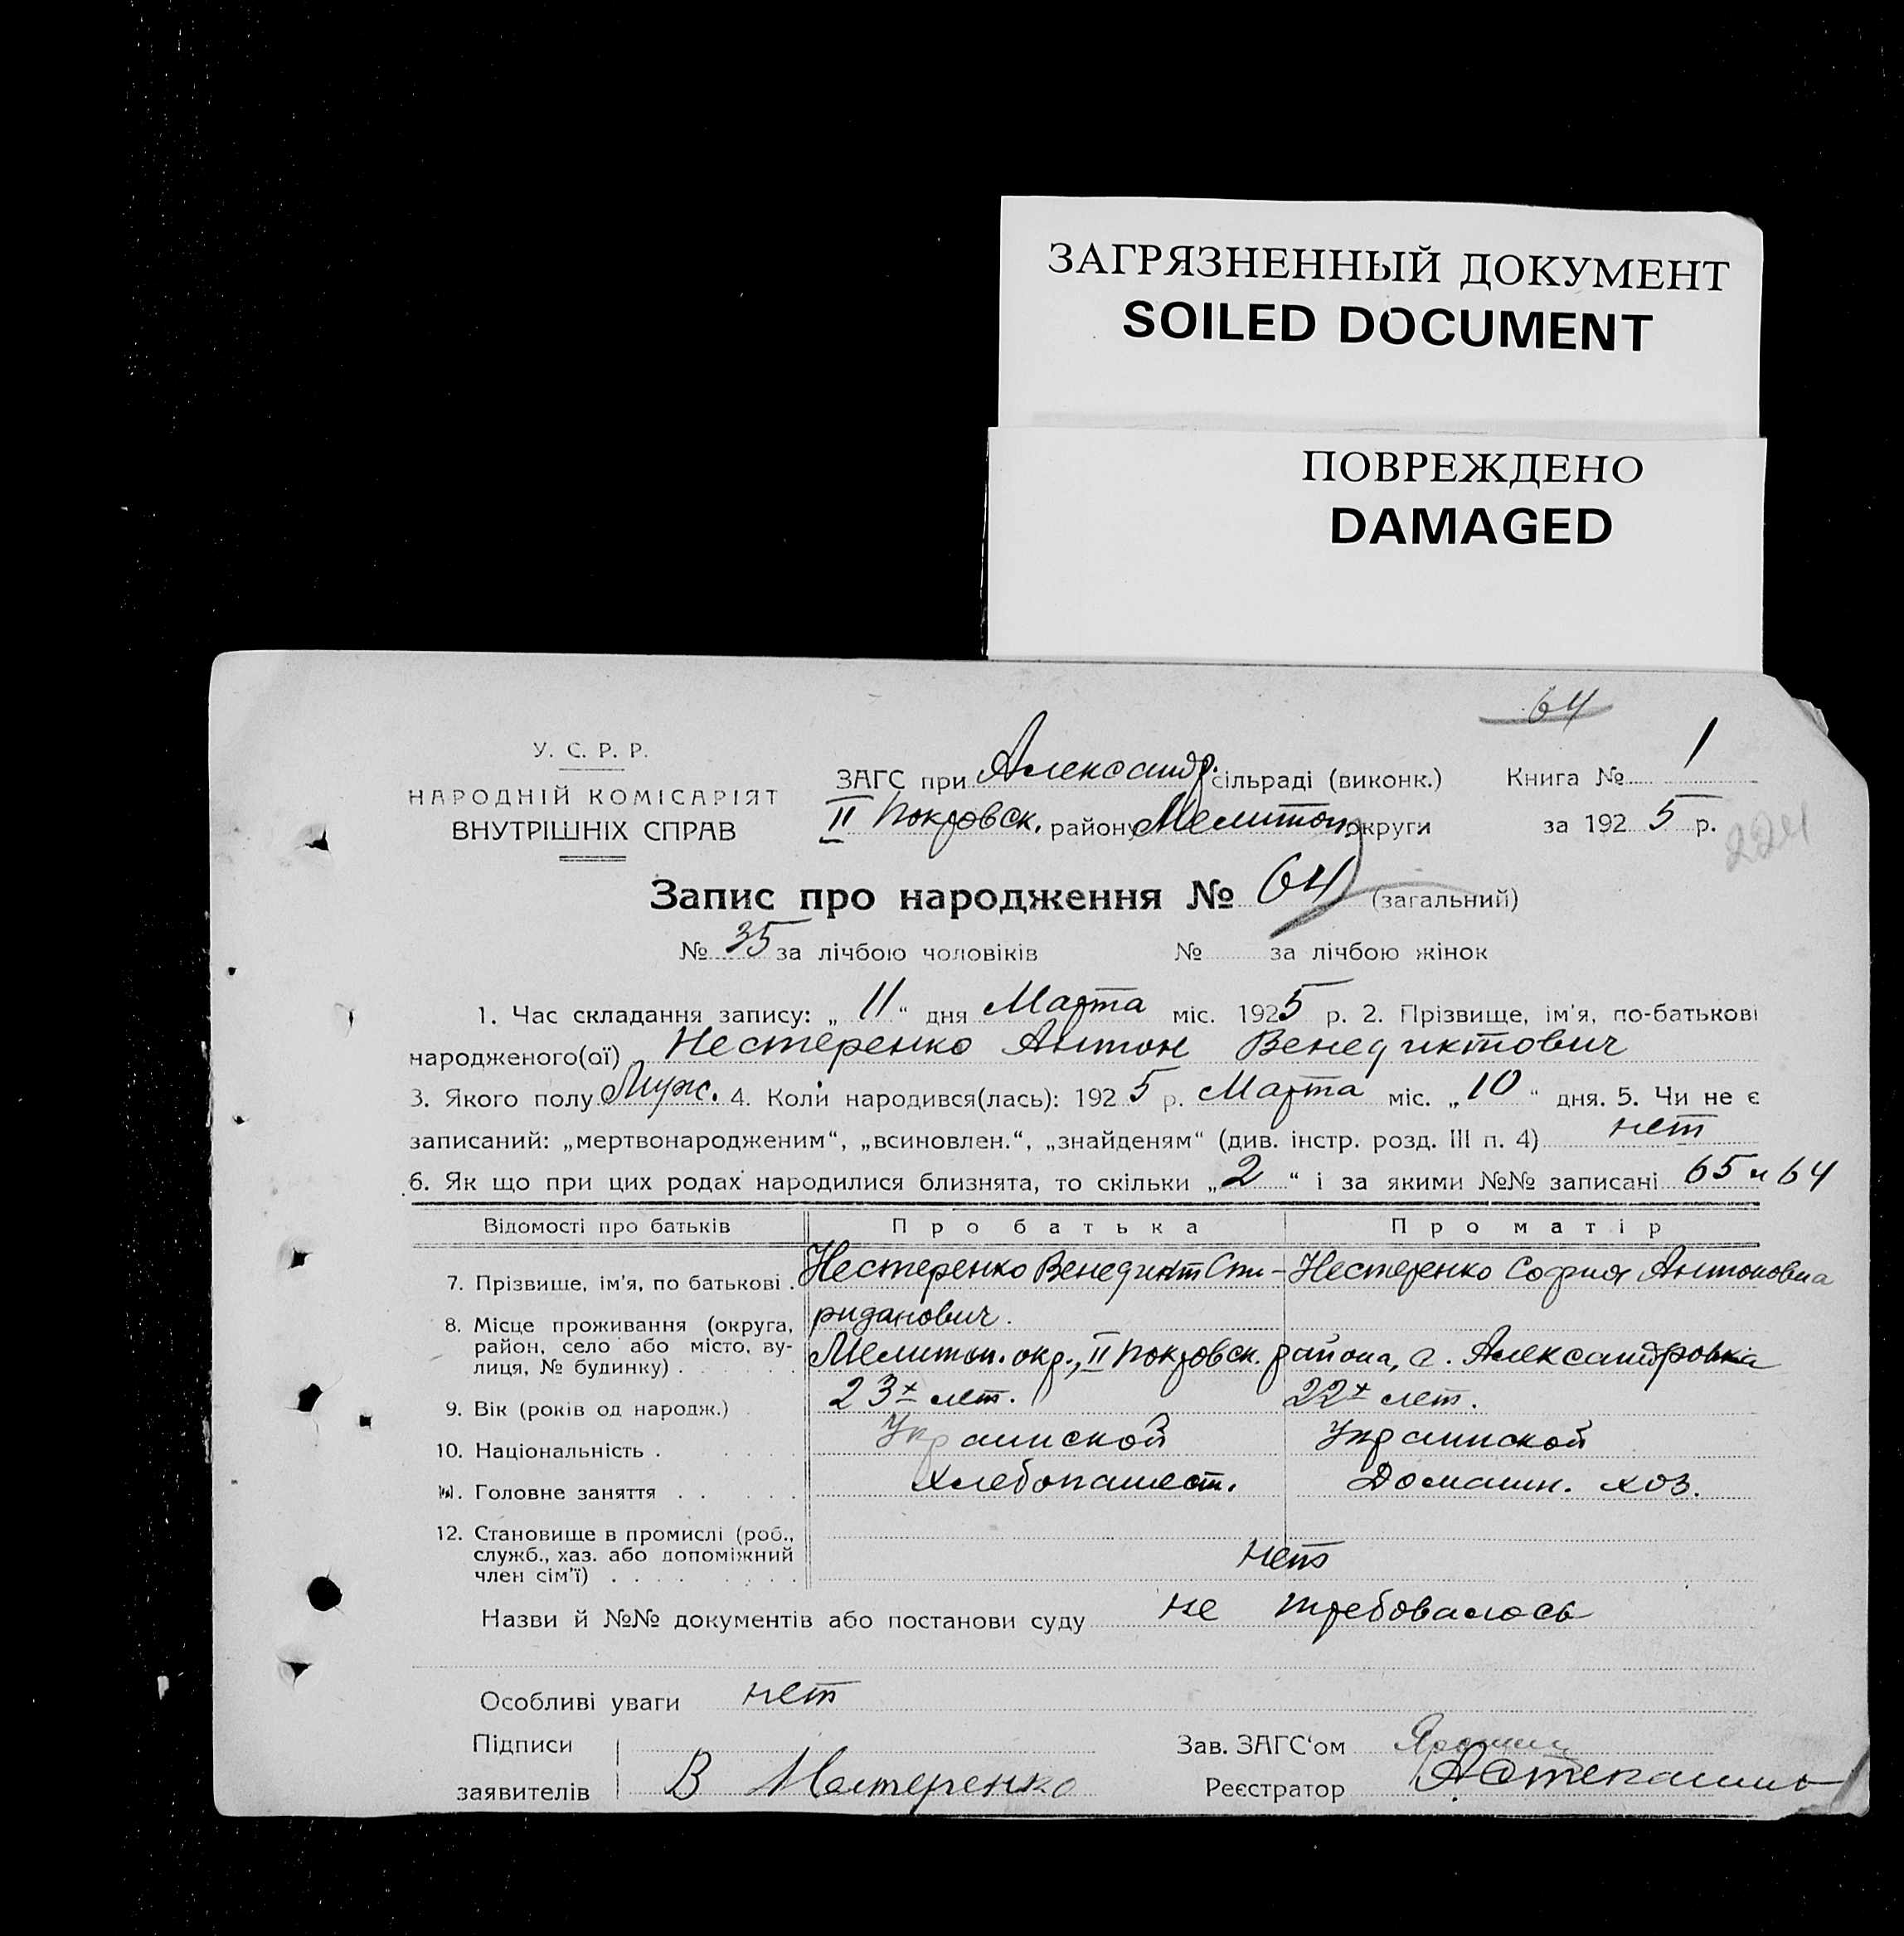 ЗАГРЯЗНЕННЫЙ ДОКУМЕНТ
SOILED DOCUMENT
ПОВРЕЖДЕНО
DAMAGED
64
У. С. Р. Р.
НАРОДНІЙ КОМІСАРІЯТ
ВНУТРІШНІХ СПРАВ
ЗАГС при Александр. сільраді (виконк.) Книга № 1
II Покровск. району Мелитоп. округи за 1925 р.
224
Запис про народження № 64 (загальний)
№ 35 за лічбою чоловіків № за лічбою жінок
1. Час складання запису: „11“ дня Марта міс. 1925 р. 2. Прізвище, ім'я, по-батькові
народженого(ої) Нестеренко Антон Венедиктович
3. Якого полу Муж. 4. Коли народився(лась): 1925 р. Марта міс. „10“ дня. 5. Чи не є
записаний: „мертвонародженим“, „всиновлен.“, „знайденям“ (див. інстр. розд. III п. 4) нет
6. Як що при цих родах народилися близнята, то скільки „2“ і за якими №№ записані 65 и 64
Відомості про батьків Про батька Про матір
7. Прізвище, ім'я, по батькові . Нестеренко Венедикт Спи- Нестеренко София Антоновна
риданович.
8. Місце проживання (округа,
район, село або місто, ву-
лиця, № будинку) . Мелитоп. окр., II Покровск. района, с. Александровка
9. Вік (років од народж.) 23х лет. 22х лет.
10. Національність . Украинской Украинской
11. Головне заняття . . Хлебопашест. Домашн. хоз.
12. Становище в промислі (роб.,
служб., хаз. або допоміжний
член сім'ї) . . . . нет
Назви й №№ документів або постанови суду не требовалось
Особливі уваги нет
Підписи
заявителів В Нестеренко
Зав. ЗАГС'ом
Реєстратор